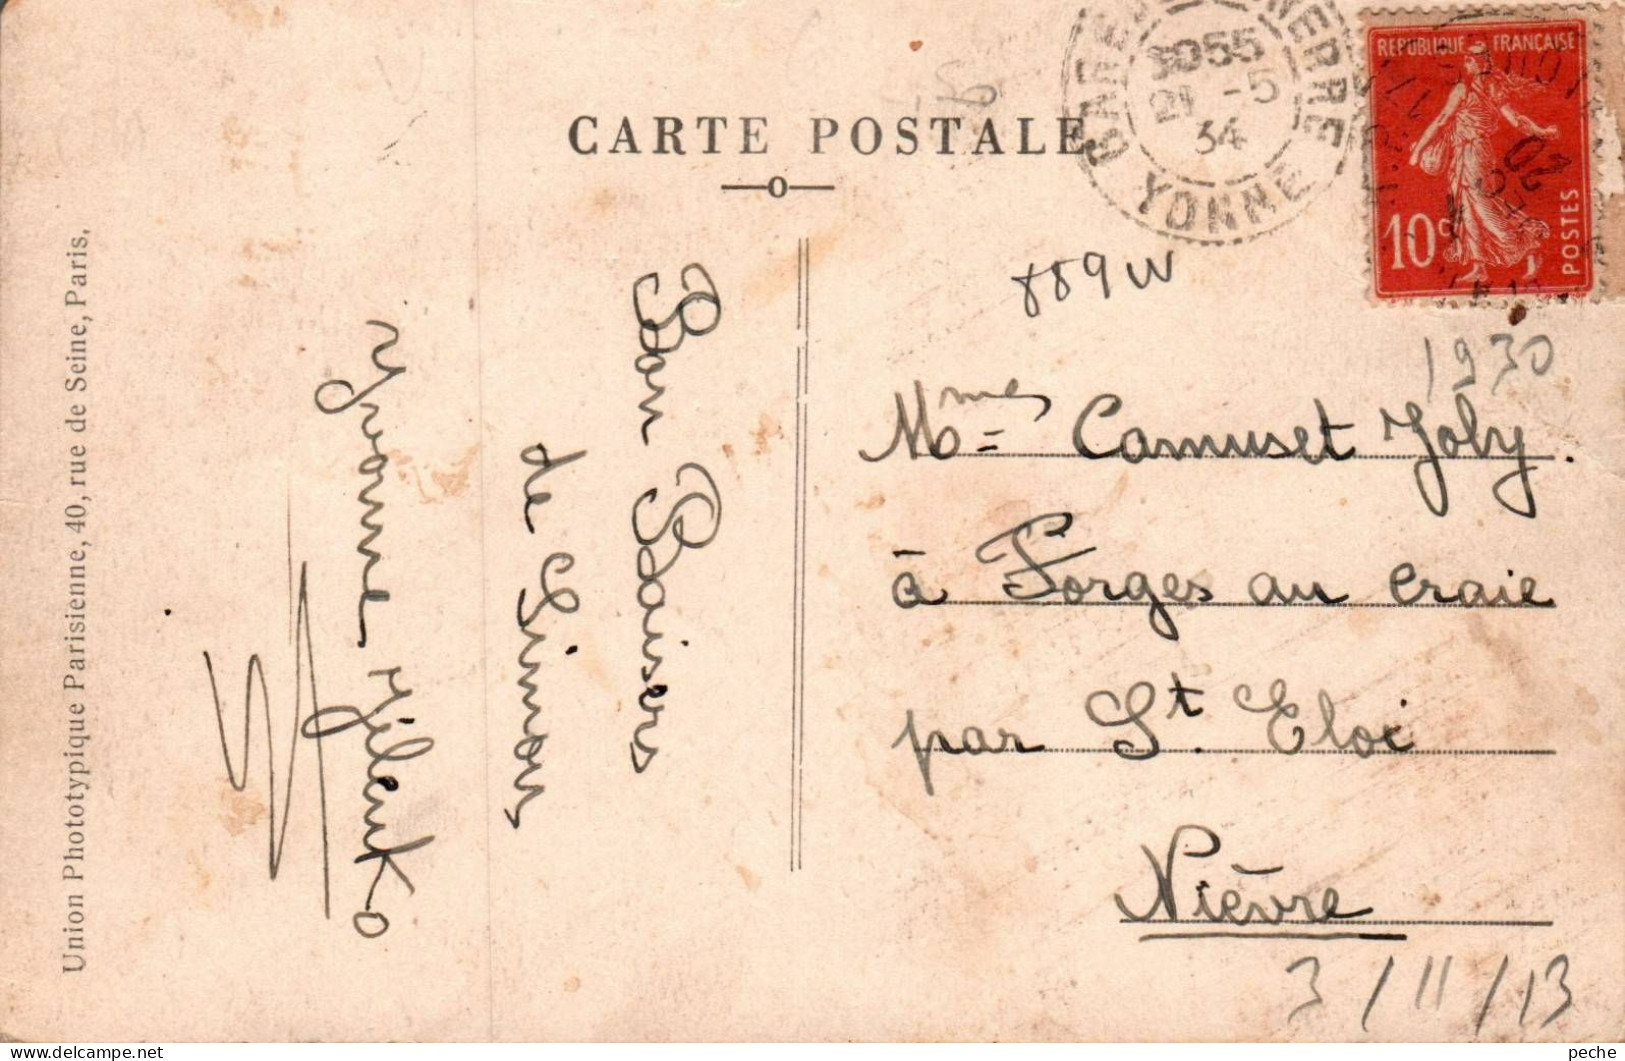 CARTE POSTALE
GARE TONNERRE
21 -5
34
YONNE
REPUBLIQUE FRANÇAISE
10c
POSTES
889W
1930
Mmes Camuset Joby.
à Forges au craie
par St. Eloi
Nièvre
3/11/13
Bon Baisers
de Simon
Yvonne
Union Phototypique Parisienne, 40, rue de Seine, Paris.
peche